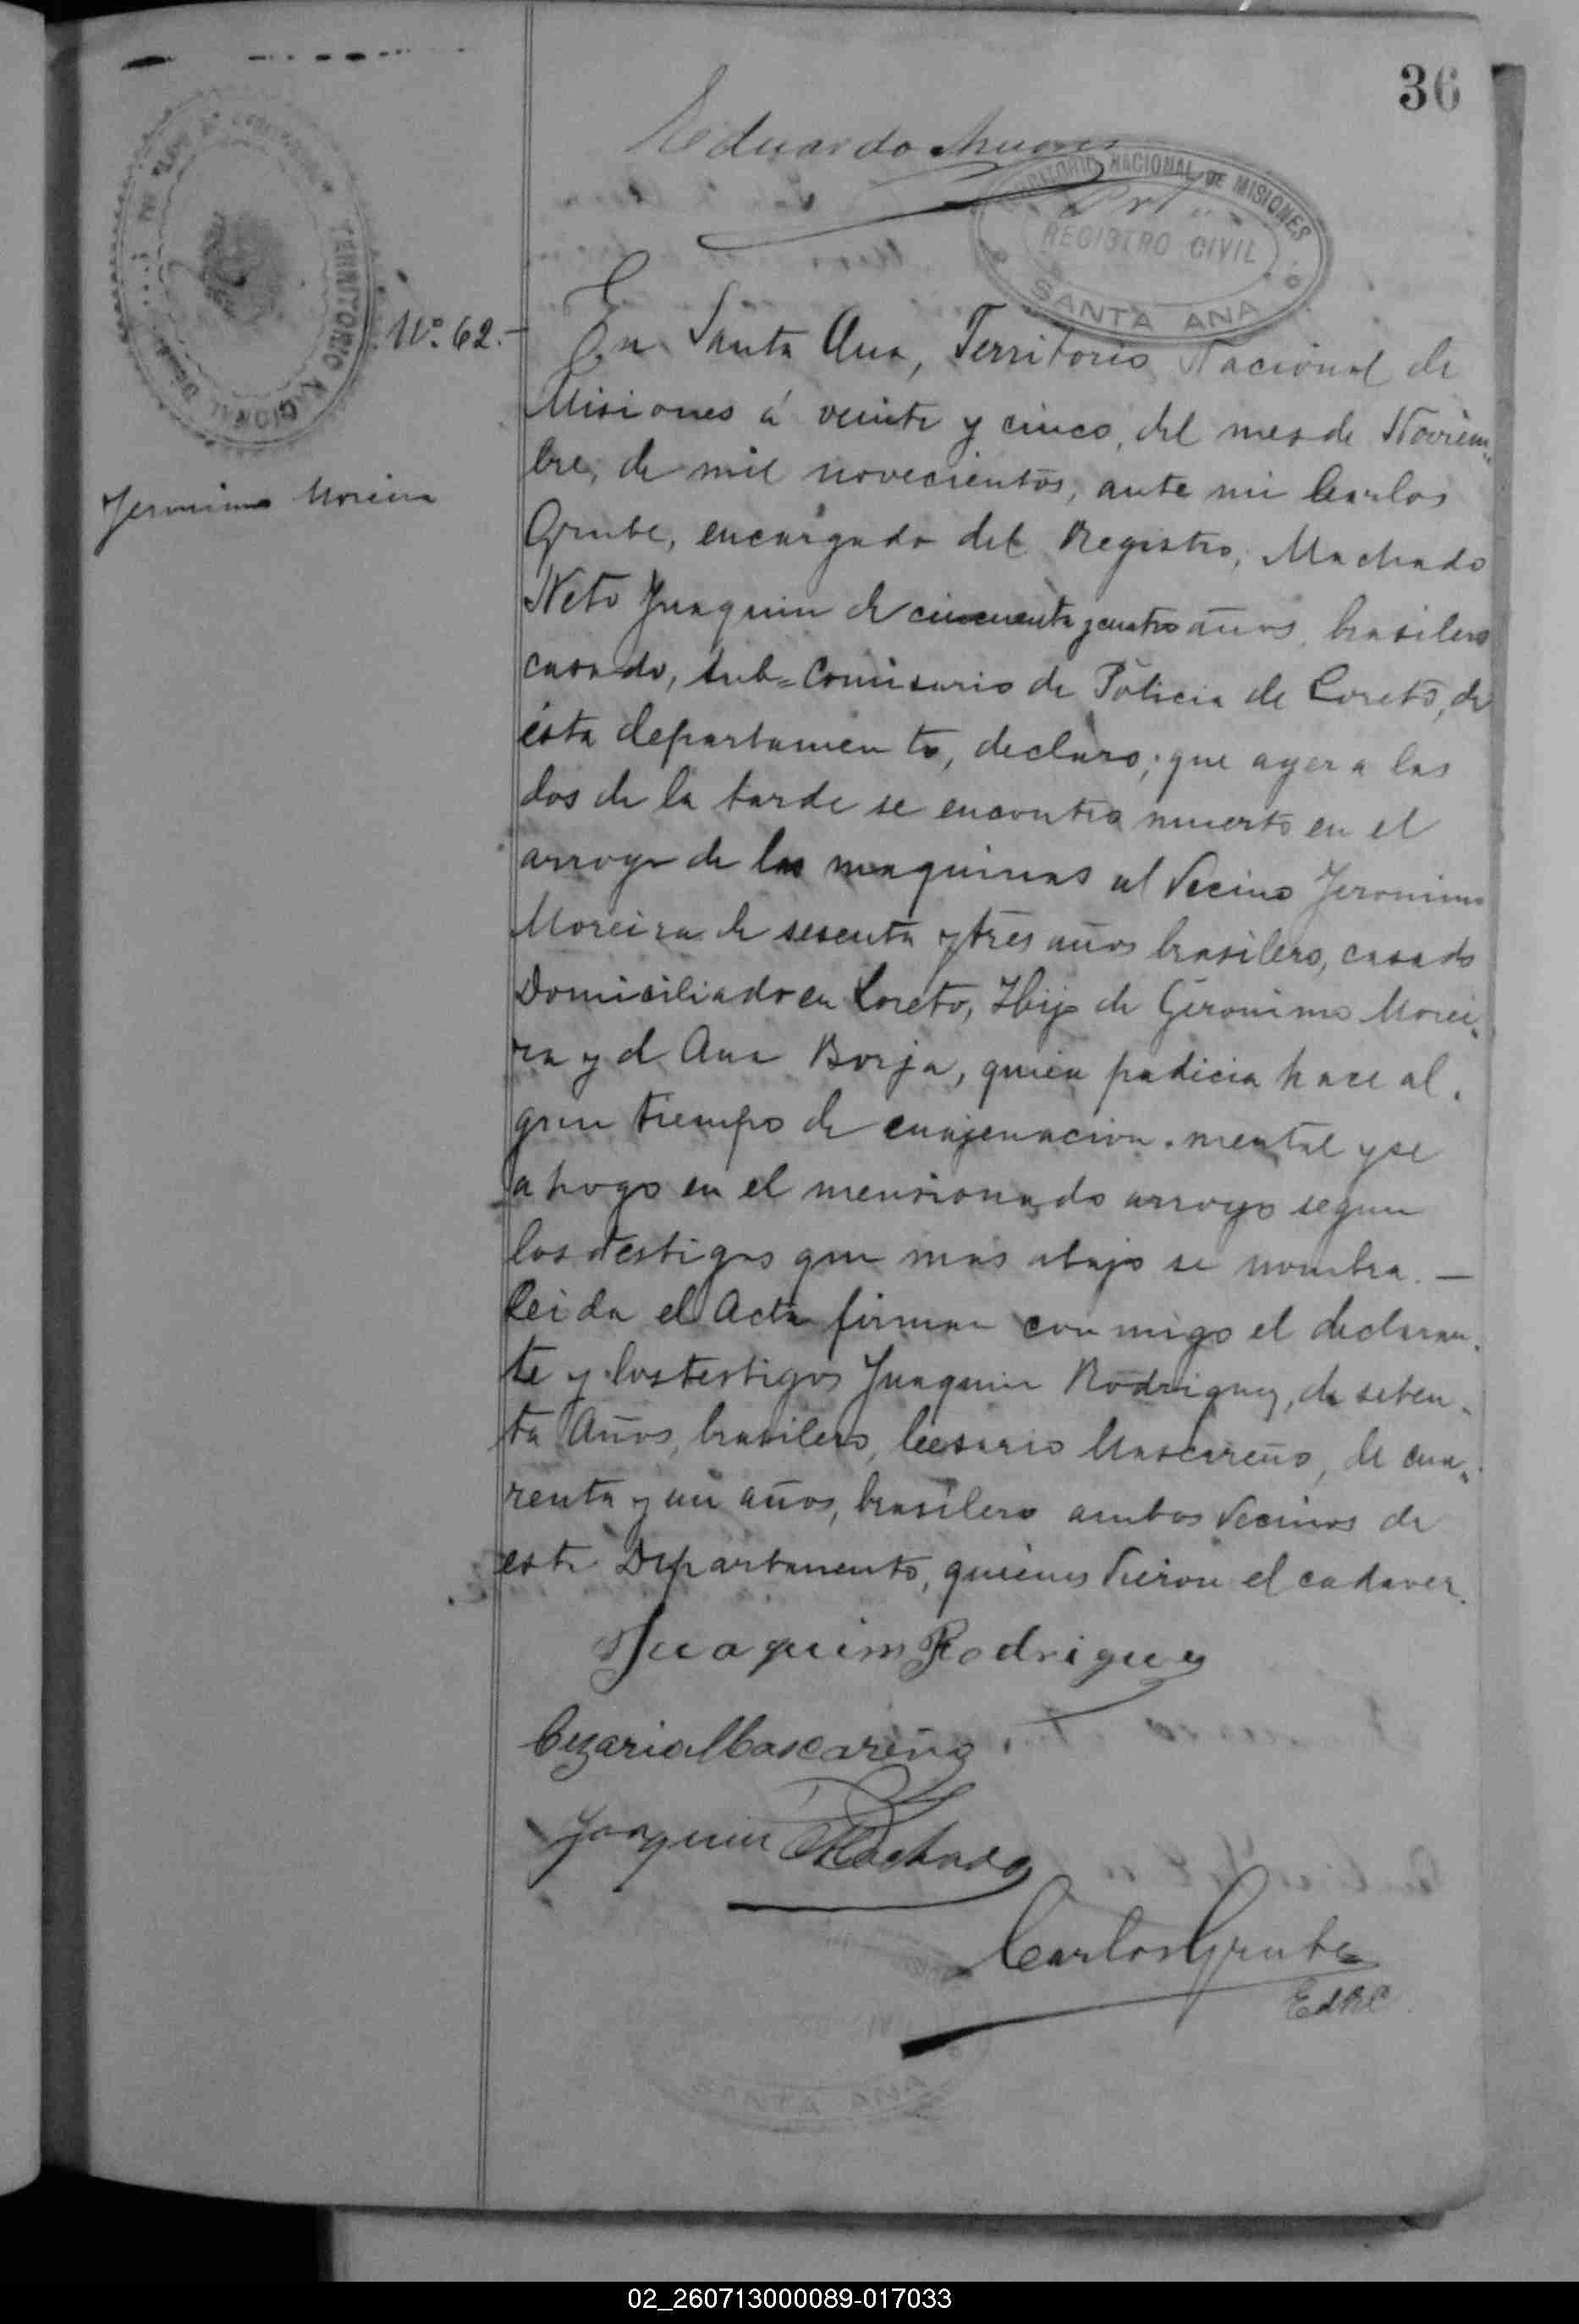 36
Eduardo
TERRITORIO NACIONAL DE MISIONES
REGISTRO CIVIL
SANTA ANA
TERRITORIO NACIONAL
Nº 62.-
Jeronimo Moreira
En Santa Ana, Territorio Nacional de
Misiones á veinte y cinco, del mes de Noviem-
bre, de mil novecientos, ante mi Carlos
Grube, encargado del Registro, Machado
Neto Juaquin de cincuenta y cuatro años, brasilero
casado, sub=Comisario de Policia de Loreto, de
ésta departamento, declaro; que ayer a las
dos de la tarde se encontro muerto en el
arroyo de las maquinas al Vecino Jeronimo
Moreira de sesenta y tres años brasilero, casado
Domiciliado en Loreto, Hijo de Geronimo Morei-
ra y d Ana Borja, quien padicia hace al-
gun tiempo de enajenacion mental y se
ahogo en el mensionado arroyo segun
los testigos que mas abajo se nombra. —
Leida el Acta firman con migo el declaran-
te y los testigos Juaquin Rodriguez, de seten-
ta Años, brasilero, Cesario Mascareño, de cua-
renta y un años, brasilero ambos Vecinos de
este Departamento, quienes Vieron el cadaver.
Juaquim Rodriguez
Cezario Mascareño
Joaquin Machado
Carlos Grube
EdRC
02_260713000089-017033